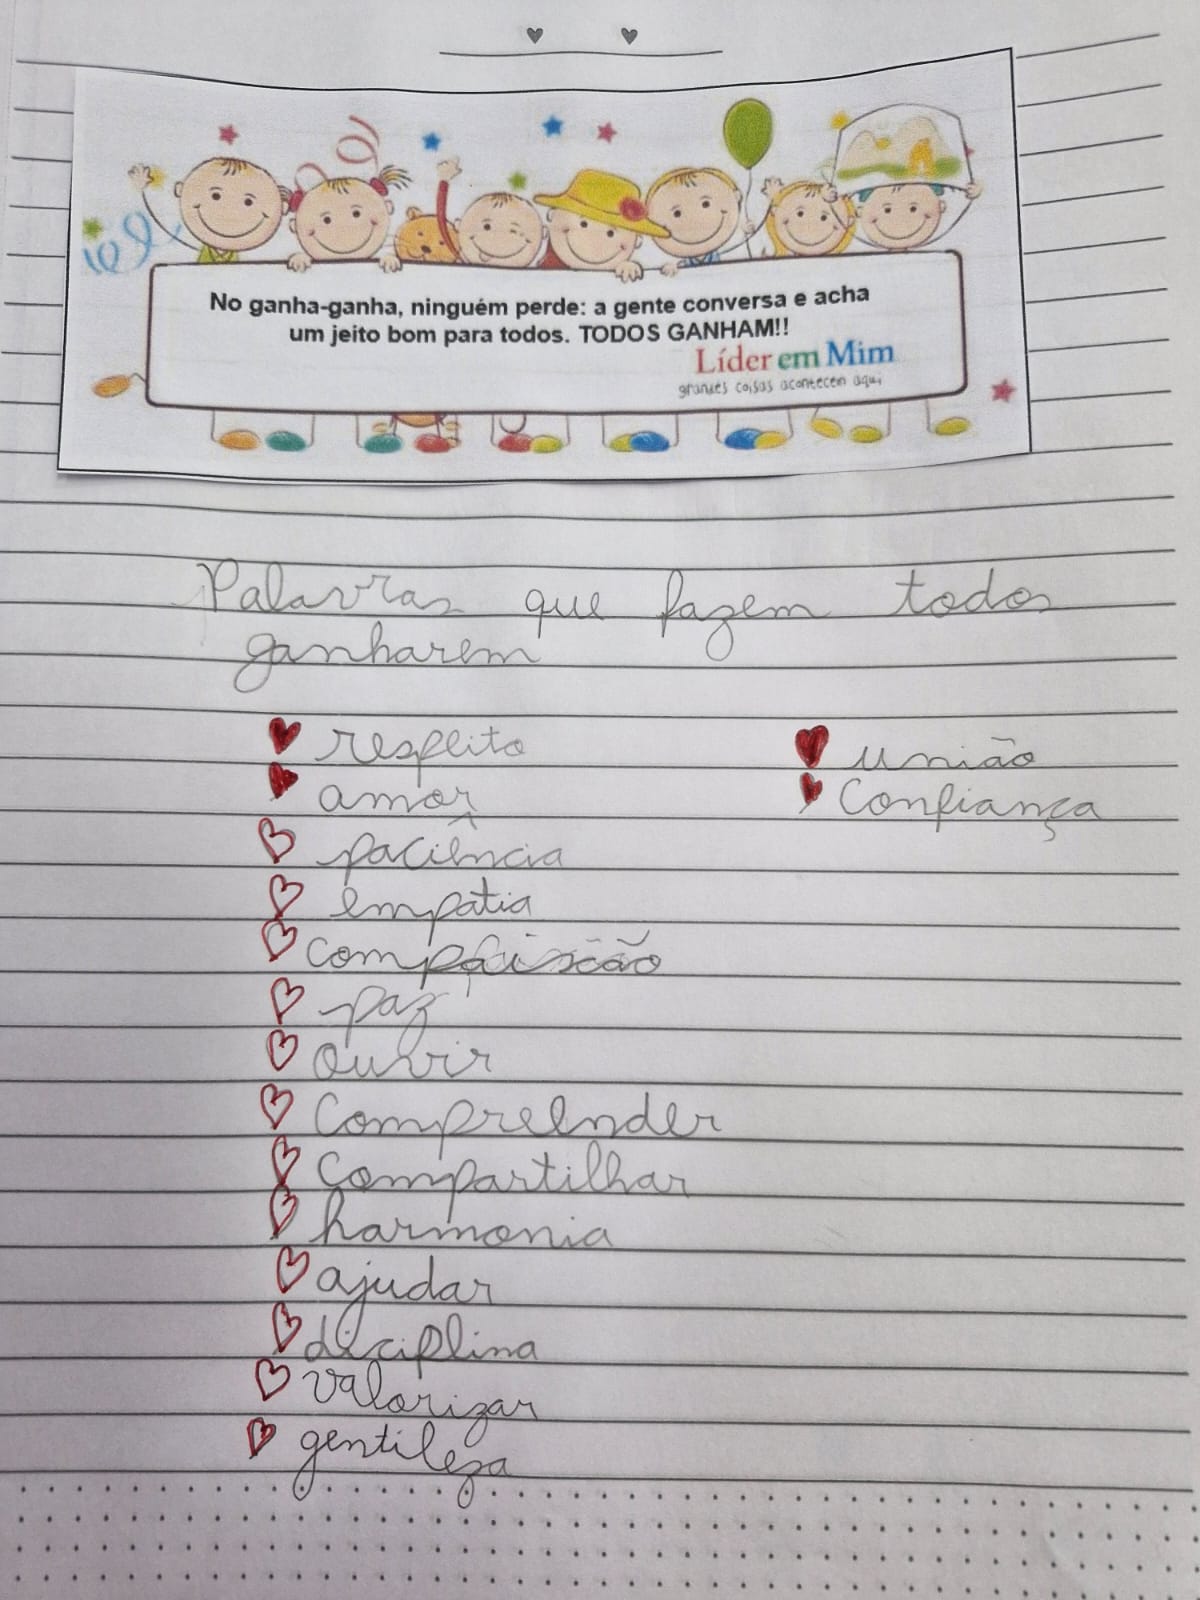 No ganha-ganha, ninguém perde: a gente conversa e acha
um jeito bom para todos. TODOS GANHAM!!
Líder em Mim
grandes coisas acontecem aqui
Palavras que fazem todos
ganharem
respeito
amor
paciência
empatia
paz
ouvir
compreender
compartilhar
harmonia
ajudar
diciplina
valorizar
gentileza
união
confiança